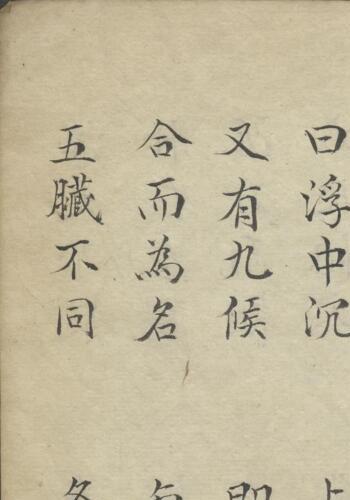 曰浮中沉
又有九候
合而為名
五臟不同